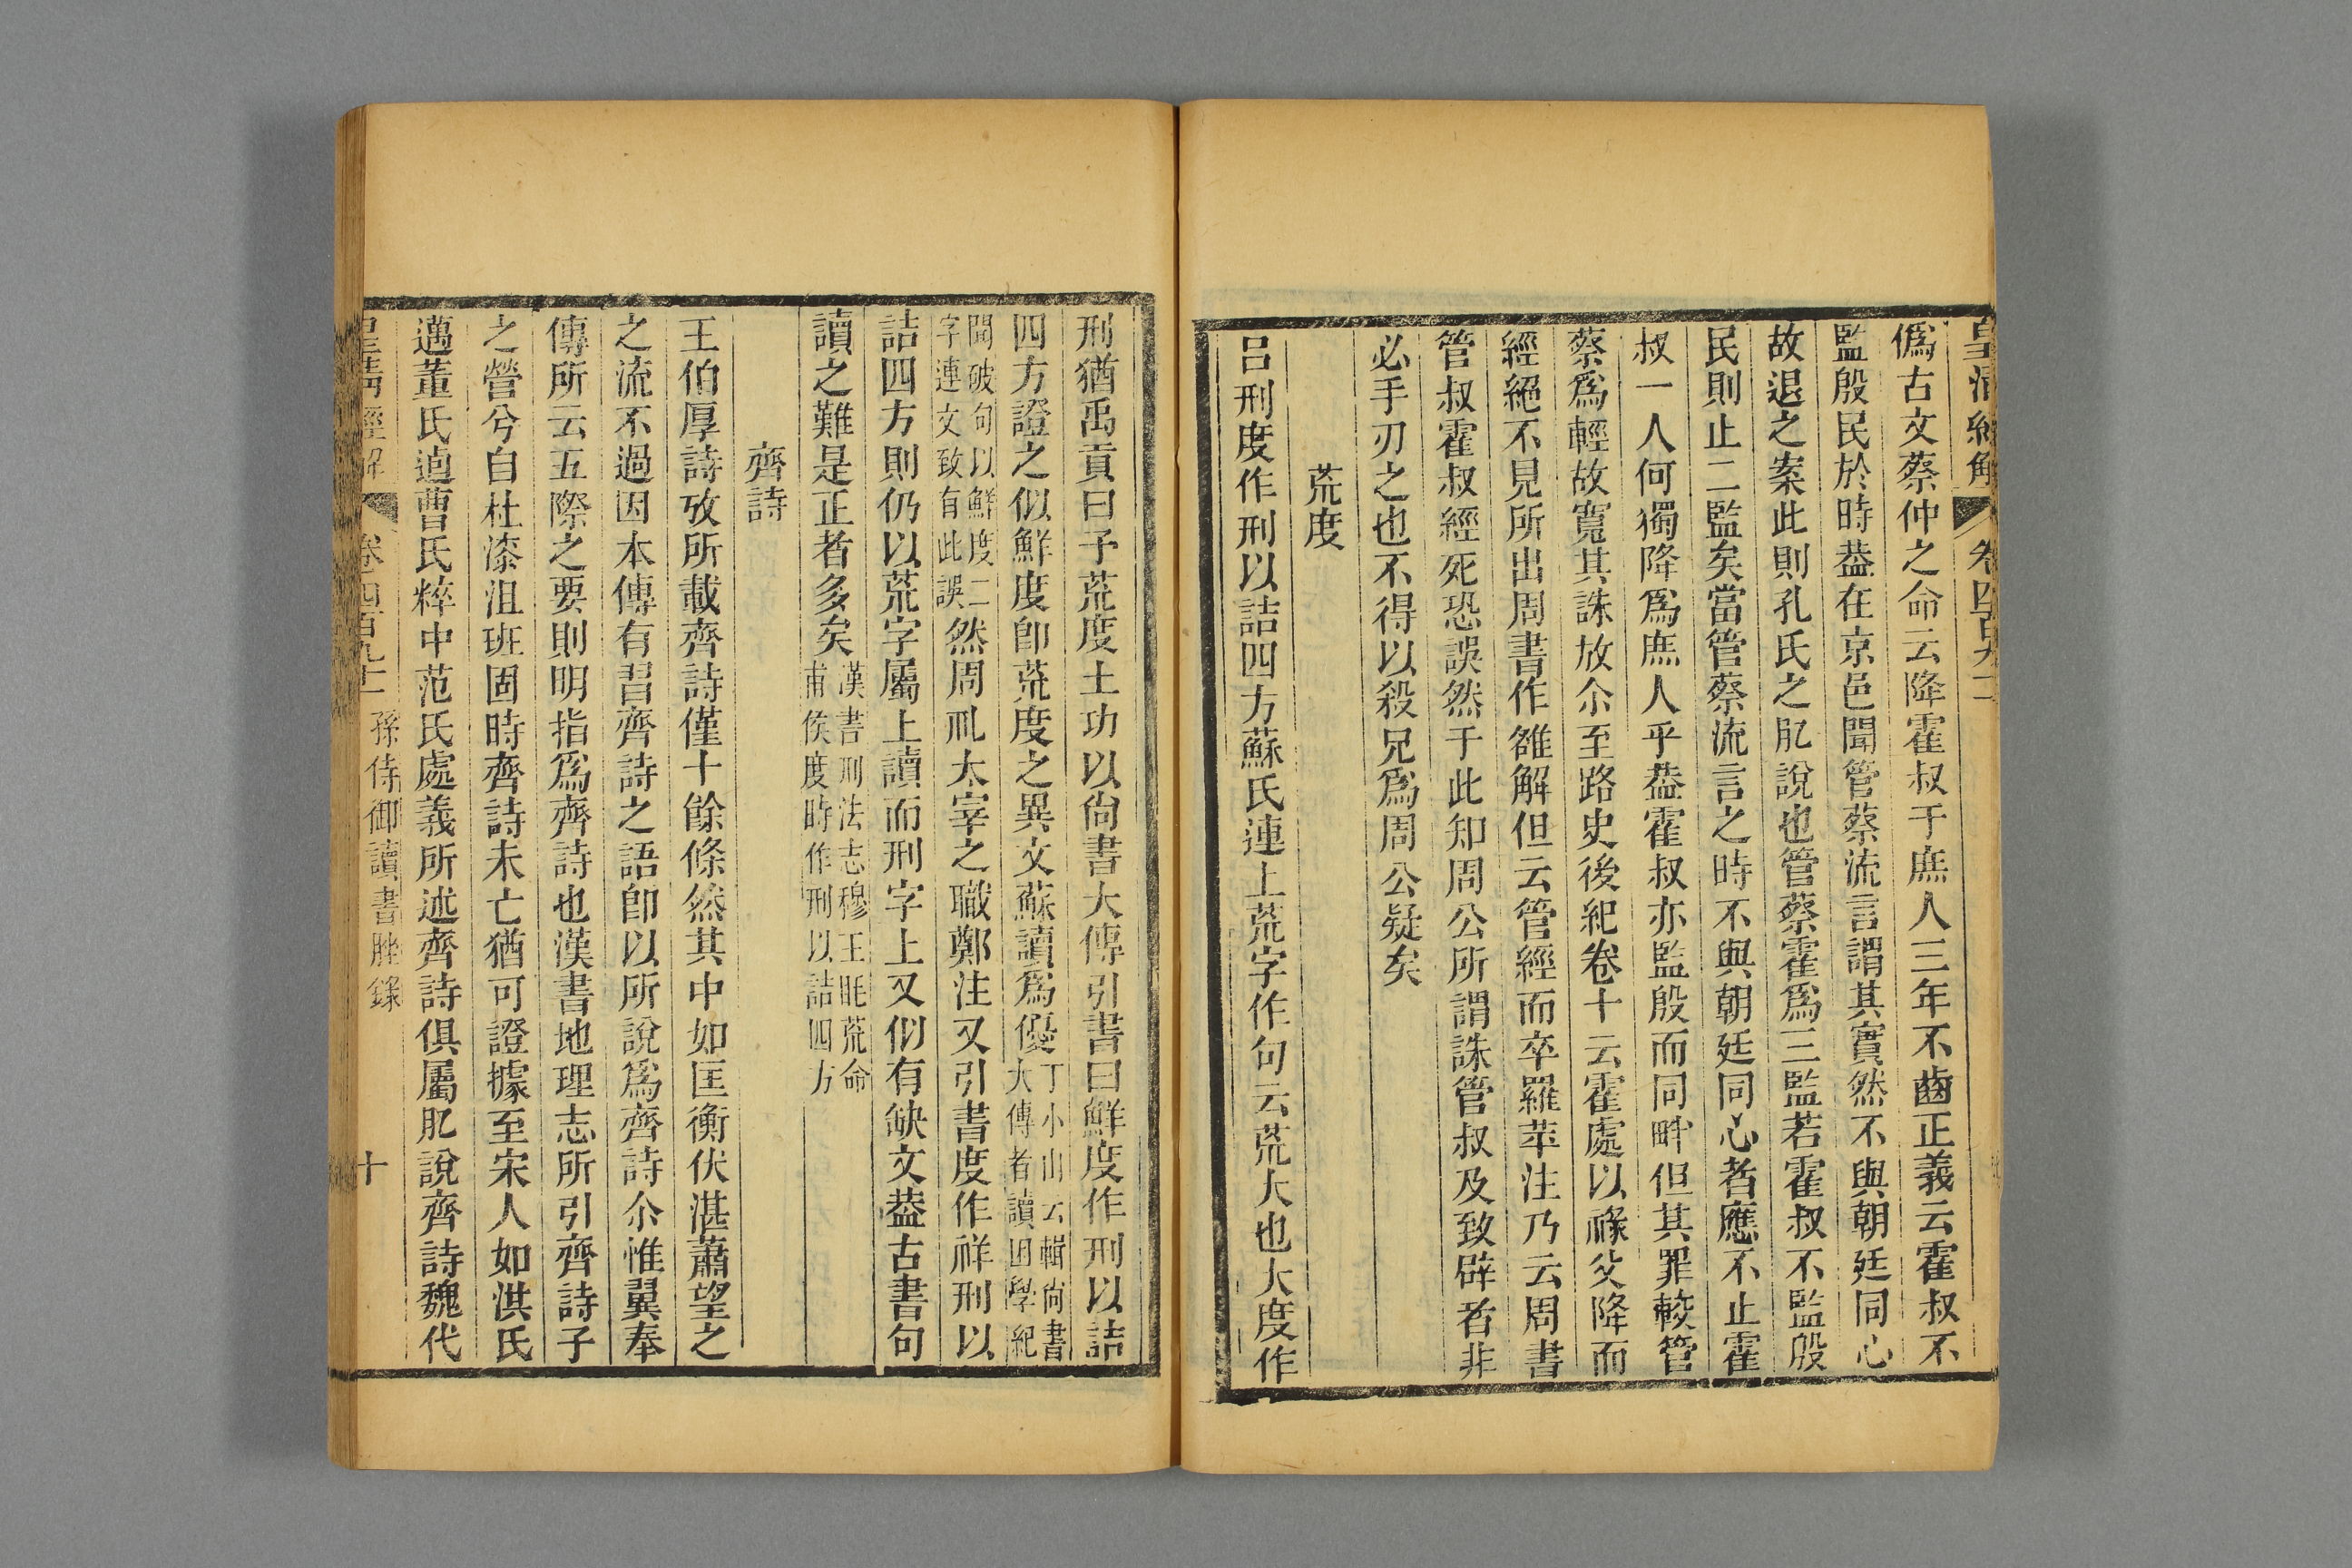 皇清經解 卷四百九十二
僞古文蔡仲之命云降霍叔于庶人三年不齒正義云霍叔不
監殷民於時葢在京邑聞管蔡流言謂其實然不與朝廷同心
故退之案此則孔氏之肊說也管蔡霍爲三監若霍叔不監殷
民則止二監矣當管蔡流言之時不與朝廷同心者應不止霍
叔一人何獨降爲庶人乎葢霍叔亦監殷而同畔但其罪較管
蔡爲輕故寬其誅放尒至路史後紀卷十云霍處以祿父降而
經絕不見所出周書作雒解但云管經而卒羅苹注乃云周書
管叔霍叔經死恐誤然于此知周公所謂誅管叔及致辟者非
必手刃之也不得以殺兄爲周公疑矣
荒度
呂刑度作刑以詰四方蘇氏連上荒字作句云荒大也大度作
刑猶禹貢曰予荒度土功以尙書大傳引書曰鮮度作刑以詰
四方證之似鮮度卽荒度之異文蘇讀爲優丁小山云輯尙書大傳者讀困學紀
聞破句以鮮度二字連文致有此誤然周礼太宰之職鄭注又引書度作祥刑以
詰四方則仍以荒字屬上讀而刑字上又似有缺文葢古書句
讀之難是正者多矣漢書刑法志穆王眊荒命甫侯度時作刑以詰四方
齊詩
王伯厚詩攷所載齊詩僅十餘條然其中如匡衡伏湛蕭望之
之流不過因本傳有習齊詩之語卽以所說爲齊詩尒惟翼奉
傳所云五際之要則明指爲齊詩也漢書地理志所引齊詩子
之營兮自杜漆沮班固時齊詩未亡猶可證據至宋人如洪氏
邁董氏逌曹氏粹中范氏處義所述齊詩俱屬肊說齊詩魏代
皇清經解 卷四百九十二 孫侍御讀書脞錄 十